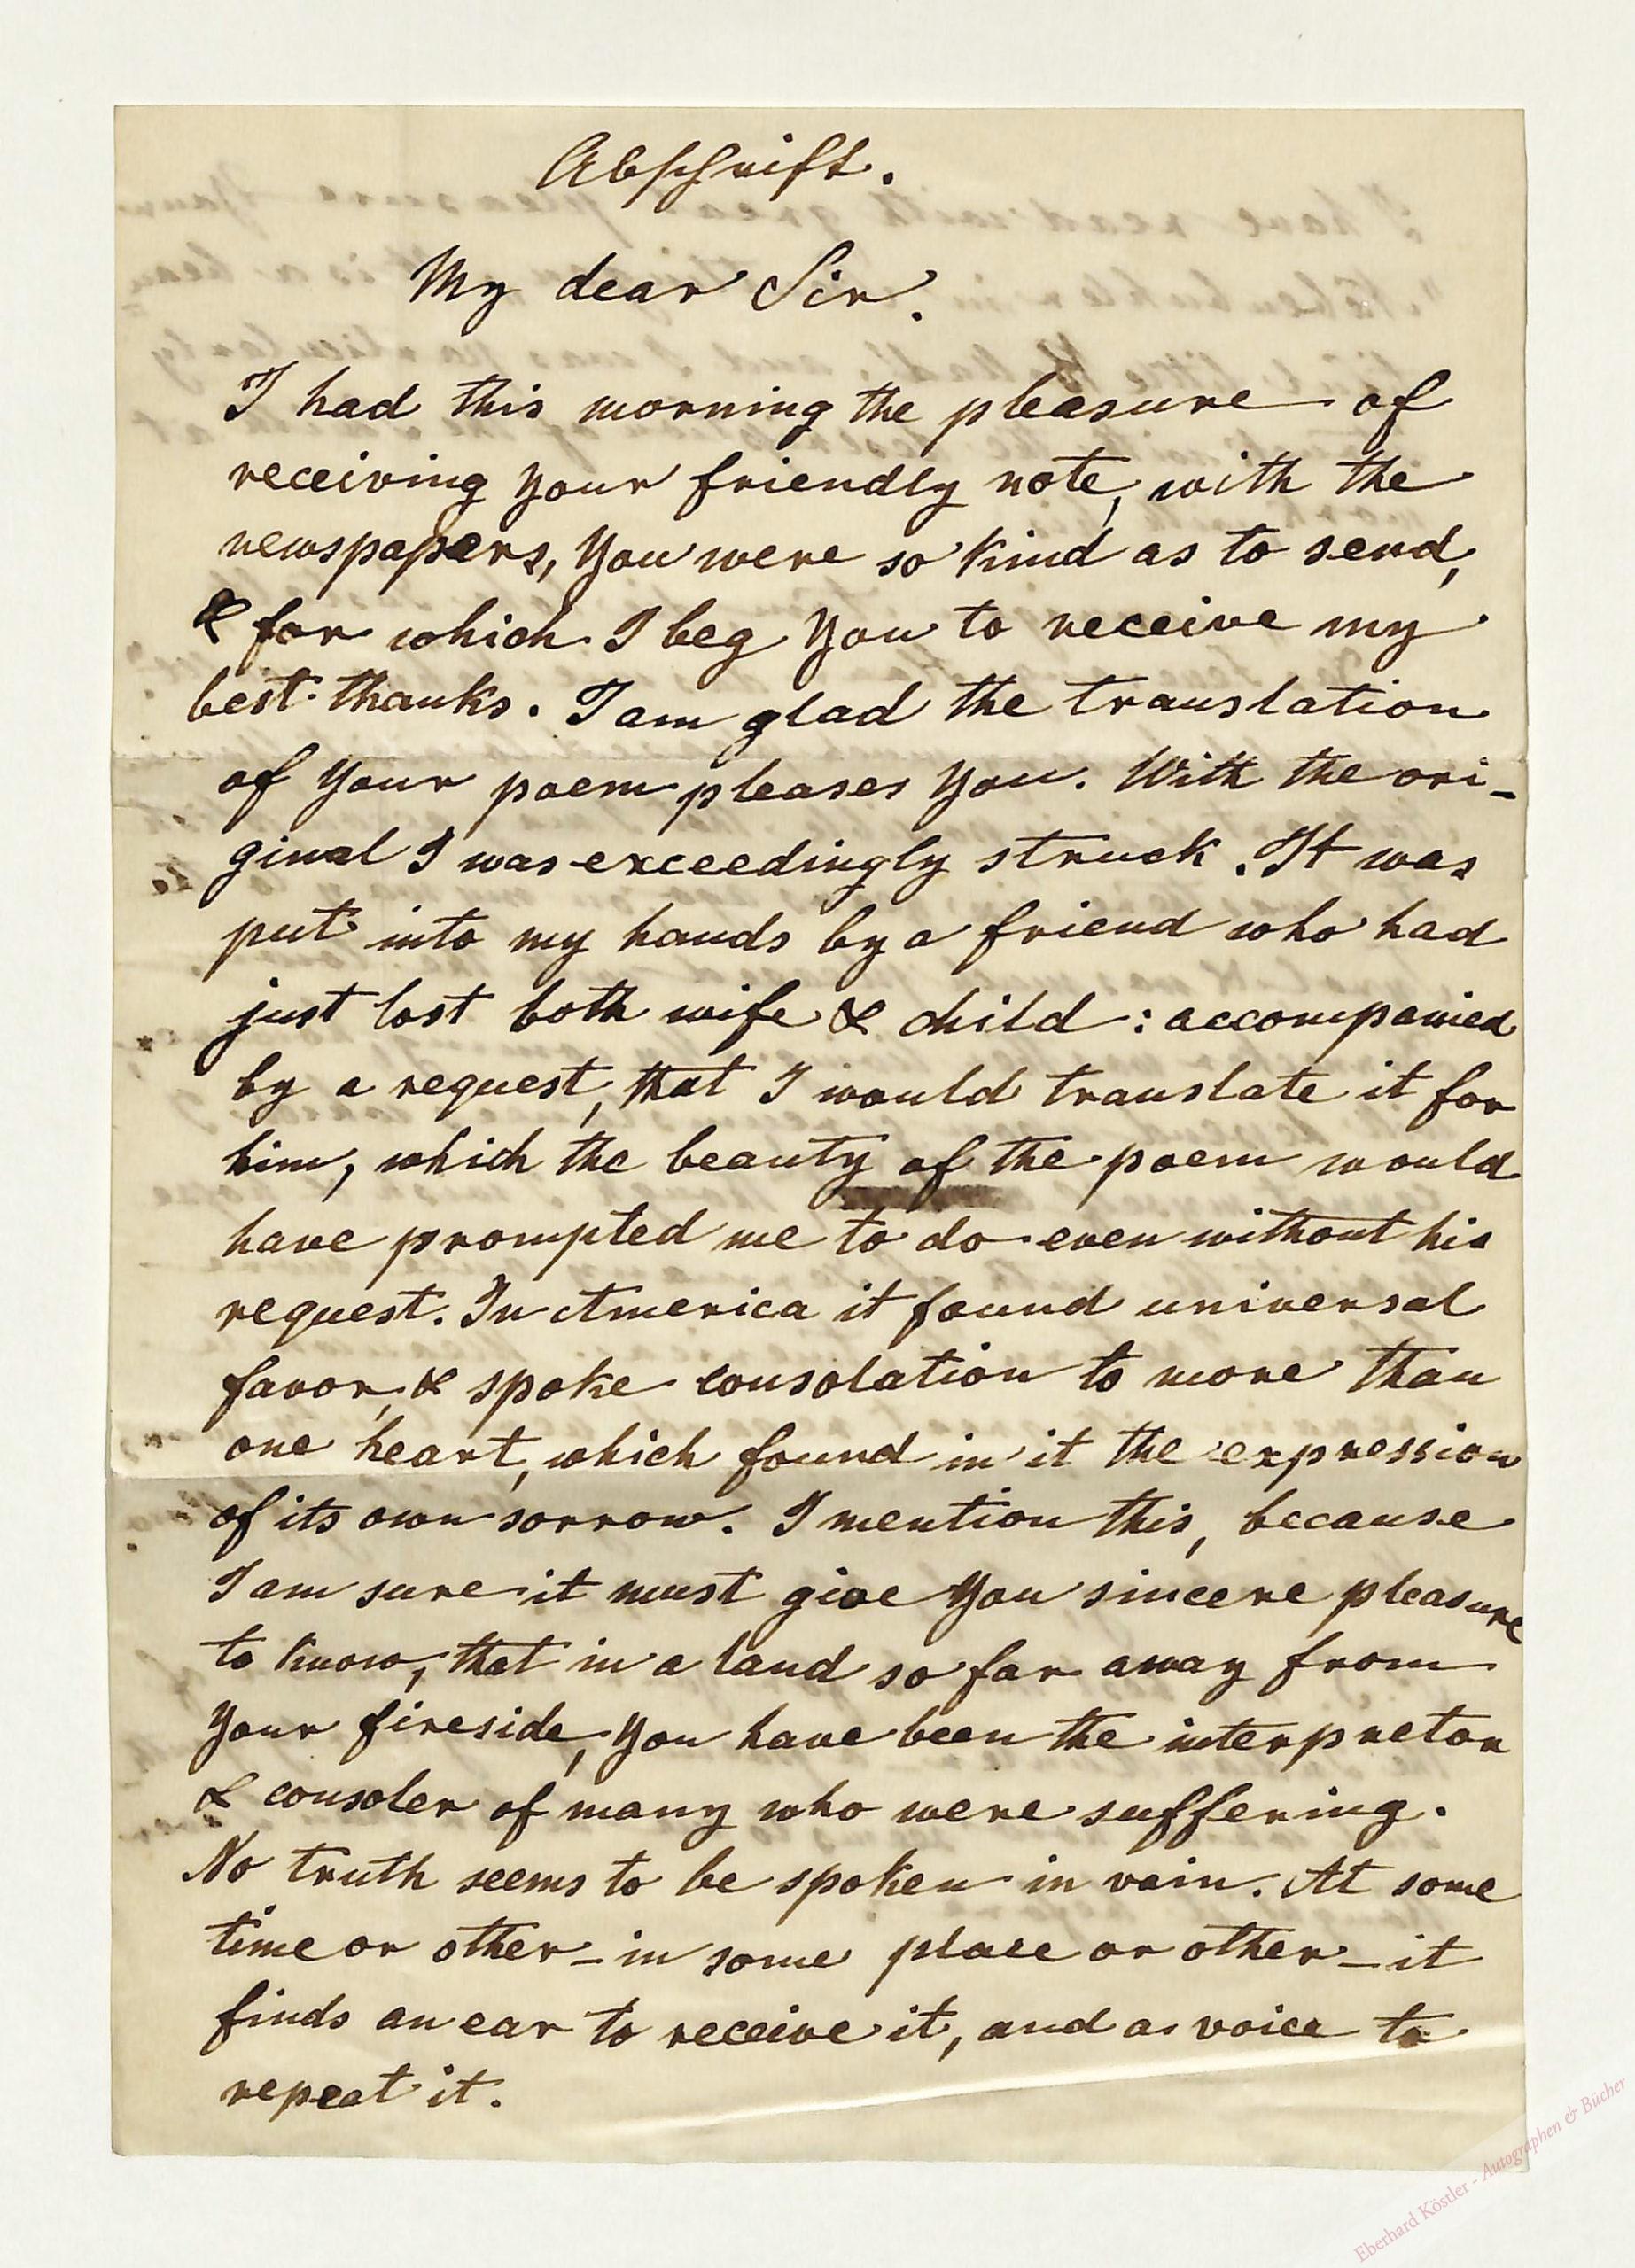 Abschrift.
My dear Sir.
I had this morning the pleasure of
receiving your friendly note, with the
newspapers, you were so kind as to send,
& for which I beg you to receive my
best thanks. I am glad the translation
of your poem pleases you. With the ori-
ginal I was exceedingly struck. It was
put into my hands by a friend who had
just lost both wife & child: accompanied
by a request, that I would translate it for
him, which the beauty of the poem would
have prompted me to do even without his
request. In America it found universal
favor, & spoke consolation to more than
one heart, which found in it the expression
of its own sorrow. I mention this, because
I am sure it must give you sincere pleasure
to know, that in a land so far away from
your fireside, you have been the interpretor
& consoler of many who were suffering.
No truth seems to be spoken in vain. At some
time or other - in some place or other - it
finds an ear to receive it, and a voice to
repeat it.
Eberhard Köstler - Autographen & Bücher